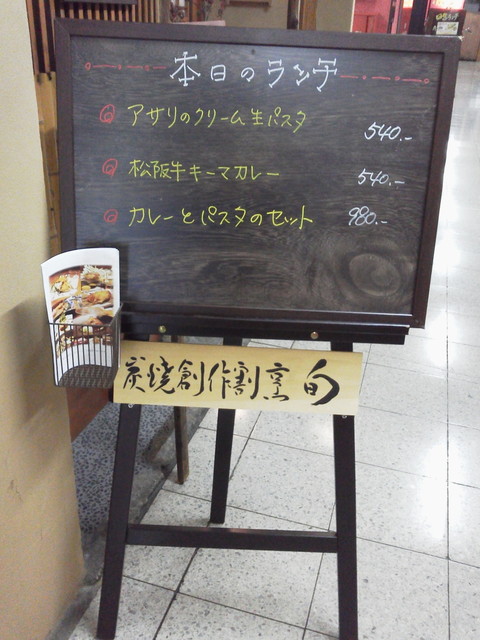 本日のランチ
アサリのクリーム生パスタ 540.-
松阪牛キーマカレー 540.-
カレーとパスタのセット 980.-
炭焼創作割烹 旬